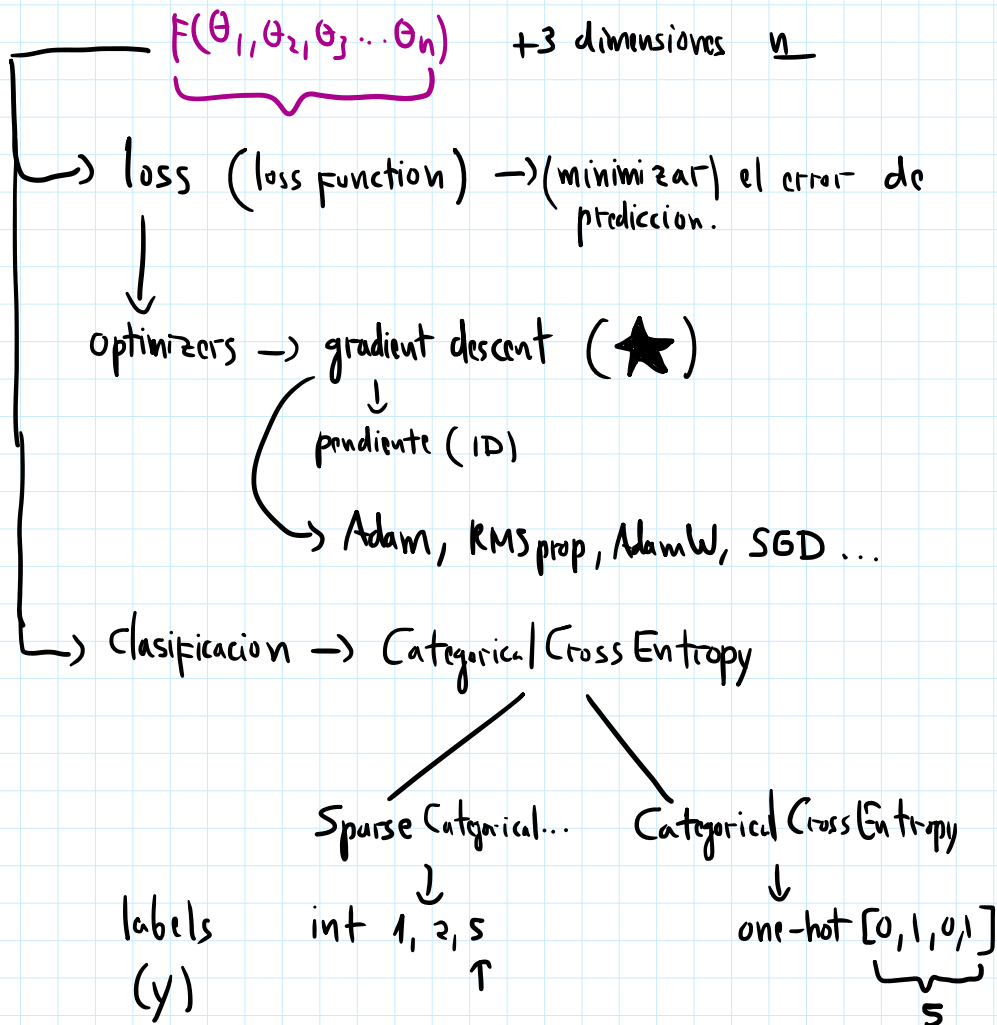 F(θ₁, θ₂, θ₃ ... θₙ) +3 dimensiones n
→ loss (loss function) → (minimizar) el error de
prediccion.
optimizers → gradient descent (★)
pendiente (1D)
Adam, RMSprop, AdamW, SGD ...
→ Clasificacion → Categorical CrossEntropy
Sparse Categorical... Categorical CrossEntropy
labels int 1, 2, 5 one-hot [0,1,0,1]
(y) 5